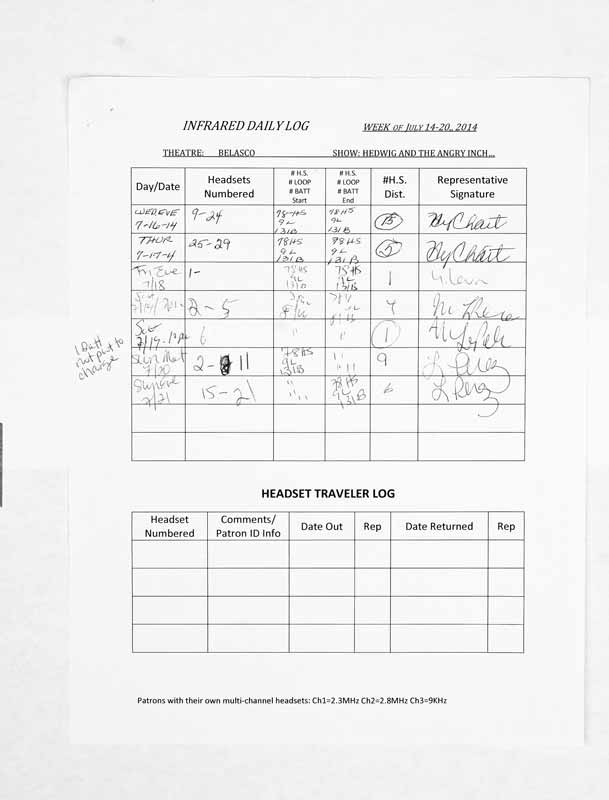 INFRARED DAILY LOG WEEK OF JULY 14-20, 2014
THEATRE: BELASCO SHOW: HEDWIG AND THE ANGRY INCH...
Day/Date Headsets Numbered # H.S. # LOOP # BATT Start # H.S. # LOOP # BATT End #H.S. Dist. Representative Signature
7-16-14 9-24 78-HS 9L 131B 78HS 9L 131B 15
THUR 7-17-4 25-29 78HS 9L 131B 98HS 9L 131B 5
Fri Eve 7/18 1- 78HS 9L 78HS 9L 131B 1
2-5 4
Sat 7/19 6 " " 1
1 Batt not put to change
Sun Mat 7/20 2-11 78HS 9L 131B " " 9 L Perez
Sun eve 7/21 15-21 " " 78HS 9L 131B 6 L Perez
HEADSET TRAVELER LOG
Headset Numbered Comments/ Patron ID Info Date Out Rep Date Returned Rep
Patrons with their own multi-channel headsets: Ch1=2.3MHz Ch2=2.8MHz Ch3=9KHz